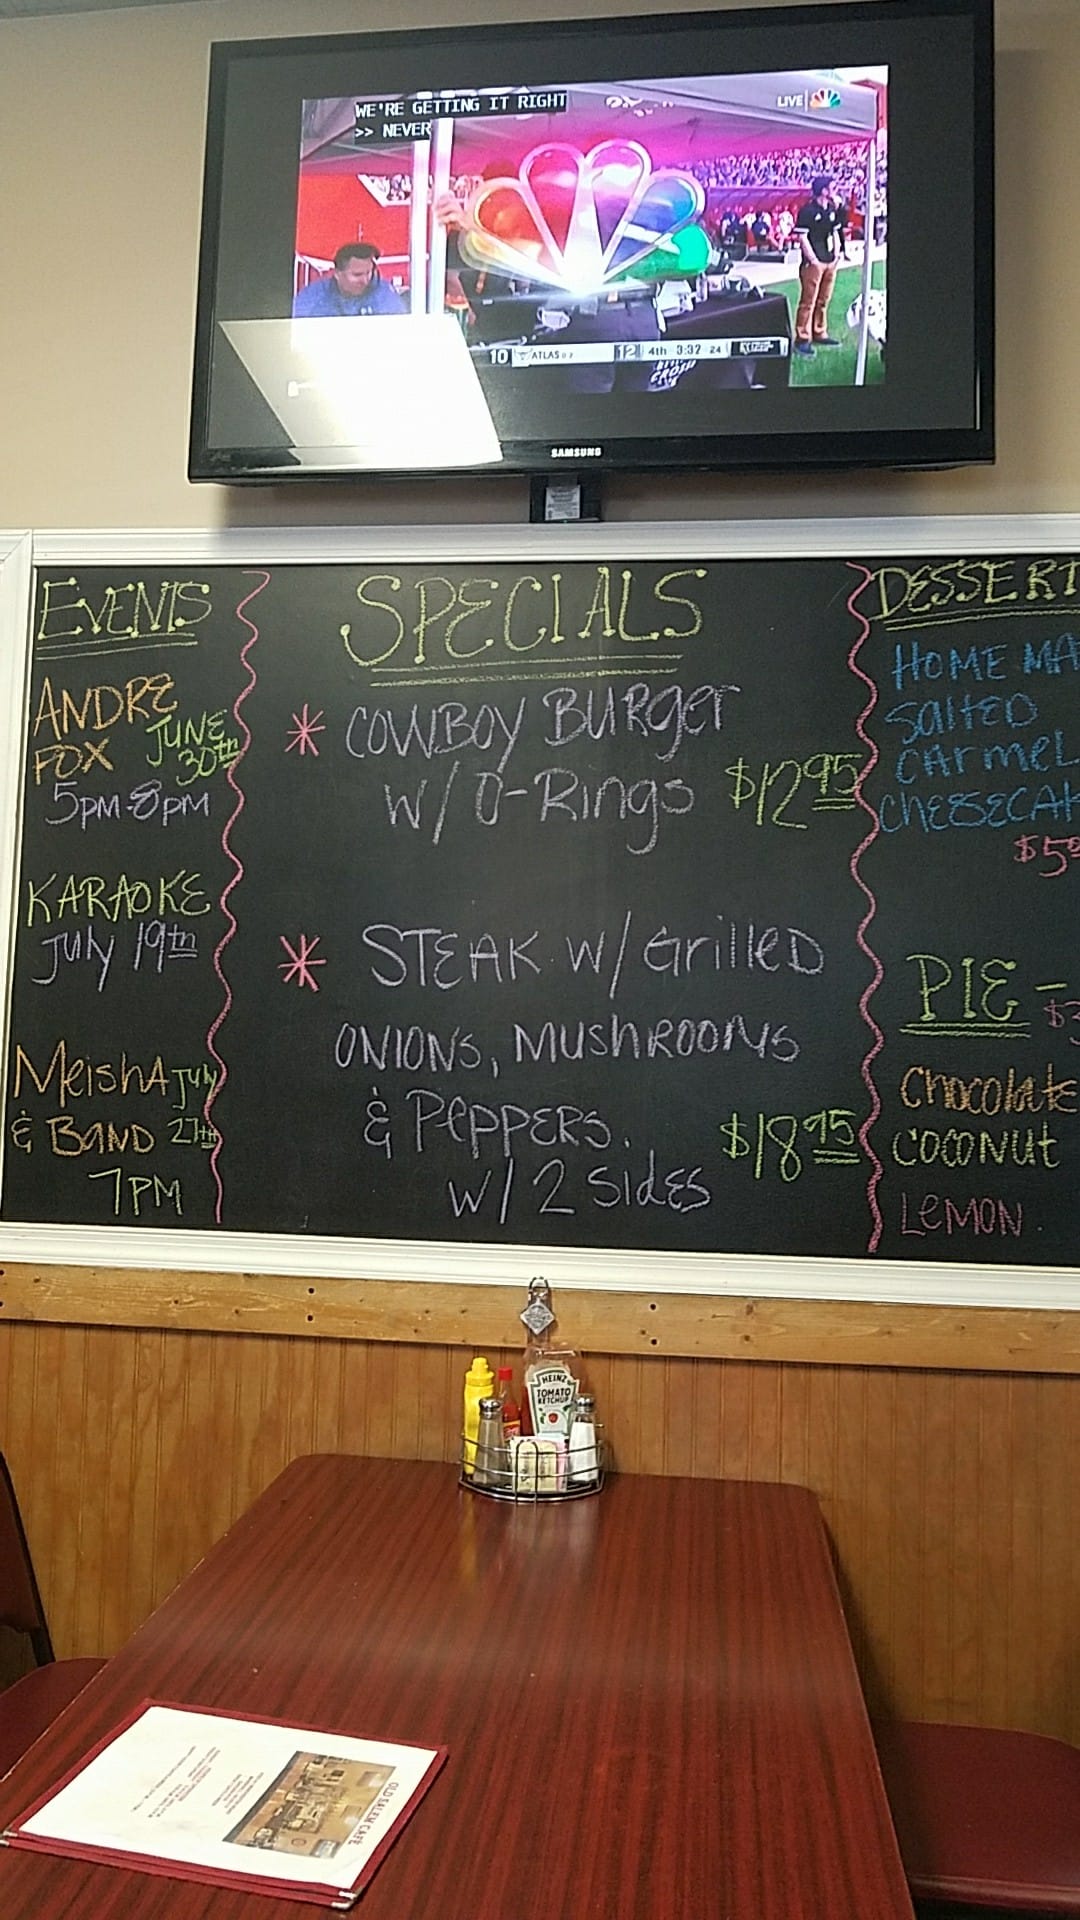 WE'RE GETTING IT RIGHT
>> NEVER
LIVE
10 ATLAS 12 4th 3:32 24
SAMSUNG
EVENTS
ANDRE
FOX JUNE
30th
5PM-8PM
KARAOKE
July 19th
MEISHA July
& BAND 27th
7PM
SPECIALS
* COWBOY BURGER
W/ O-RINGS $12.95
* STEAK W/ GRILLED
ONIONS, MUSHROOMS
& PEPPERS. $18.95
W/ 2 SIDES
DESSERT
HOME MA
SALTED
CARMEL
CHEESECAK
$5
PIE -
$3
CHOCOLATE
COCONUT
LEMON.
HEINZ
TOMATO
KETCHUP
OLD SALEM CAFE